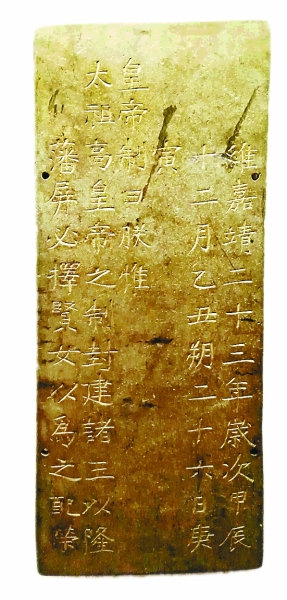 維嘉靖二十三年歲次甲辰
十二月乙丑朔二十六日庚
寅
皇帝制曰朕惟
太祖高皇帝之制封建諸王以隆
藩屏必擇賢女以爲之配榮